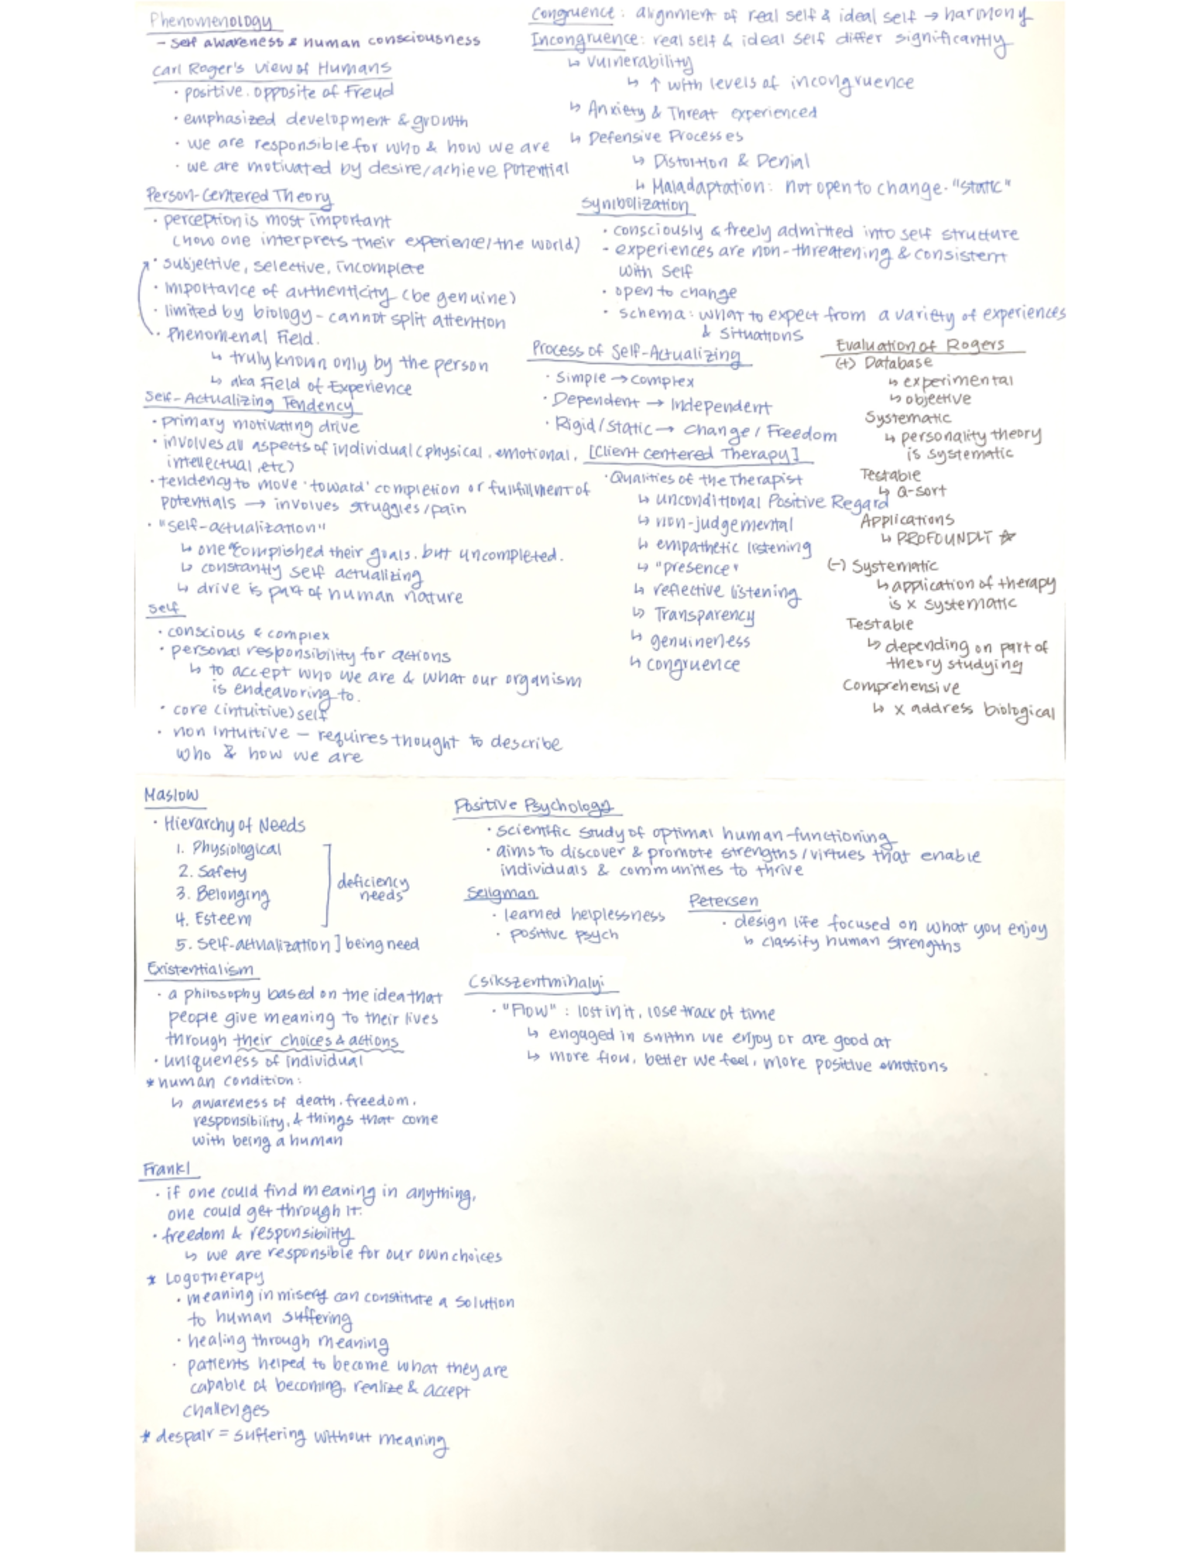 Phenomenology
- self awareness & human consciousness
Carl Roger's view of Humans
· positive. opposite of Freud
· emphasized development & growth
· we are responsible for who & how we are
· we are motivated by desire/achieve potential
Person-Centered Theory
· perception is most important
(how one interprets their experience/the world)
· subjective, selective, incomplete
· importance of authenticity (be genuine)
· limited by biology - cannot split attention
· Phenomenal Field.
↳ truly known only by the person
↳ aka Field of Experience
Self-Actualizing Tendency
· primary motivating drive
· involves all aspects of individual (physical, emotional,
intellectual, etc)
· tendency to move "toward" completion or fulfillment of
potentials → involves struggles/pain
· "self-actualization"
↳ one complished their goals. but uncompleted.
↳ constantly self actualizing
↳ drive is part of human nature
Self
· conscious & complex
· personal responsibility for actions
↳ to accept who we are & what our organism
is endeavoring to.
· core (intuitive) self
· non intuitive - requires thought to describe
who & how we are
Congruence: alignment of real self & ideal self → harmony
Incongruence: real self & ideal self differ significantly
↳ vulnerability
↳ ↑ with levels of incongruence
↳ Anxiety & Threat experienced
↳ Defensive Processes
↳ Distortion & Denial
↳ Maladaptation: not open to change. "static"
Symbolization
· consciously & freely admitted into self structure
- experiences are non-threatening & consistent
with self
· open to change
· schema: what to expect from a variety of experiences
& situations
Process of Self-Actualizing
· Simple → complex
· Dependent → Independent
· Rigid/Static → change/Freedom
[Client Centered Therapy]
· Qualities of the Therapist
↳ unconditional Positive Regard
↳ non-judgemental
↳ empathetic listening
↳ "presence"
↳ reflective listening
↳ Transparency
↳ genuineness
↳ congruence
Evaluation of Rogers
(+) Database
↳ experimental
↳ objective
Systematic
↳ personality theory
is systematic
Testable
↳ Q-sort
Applications
↳ PROFOUNDLY ☆
(-) Systematic
↳ application of therapy
is x systematic
Testable
↳ depending on part of
theory studying
Comprehensive
↳ x address biological
Maslow
· Hierarchy of Needs
1. Physiological
2. Safety
3. Belonging
4. Esteem
deficiency
needs
5. Self-actualization ] being need
Existentialism
· a philosophy based on the idea that
people give meaning to their lives
through their choices & actions
· uniqueness of individual
* human condition:
↳ awareness of death, freedom,
responsibility, & things that come
with being a human
Frankl
· if one could find meaning in anything,
one could get through it.
· freedom & responsibility
↳ we are responsible for our own choices
* Logotherapy
· meaning in misery can constitute a solution
to human suffering
· healing through meaning
· patients helped to become what they are
capable of becoming, realize & accept
challenges
* despair = suffering without meaning
Positive Psychology
· scientific study of optimal human-functioning
· aims to discover & promote strengths/virtues that enable
individuals & communities to thrive
Seligman
· learned helplessness
· positive psych
Petersen
· design life focused on what you enjoy
↳ classify human strengths
Csikszentmihalyi
· "Flow": lost in it, lose track of time
↳ engaged in smthn we enjoy or are good at
↳ more flow, better we feel, more positive emotions